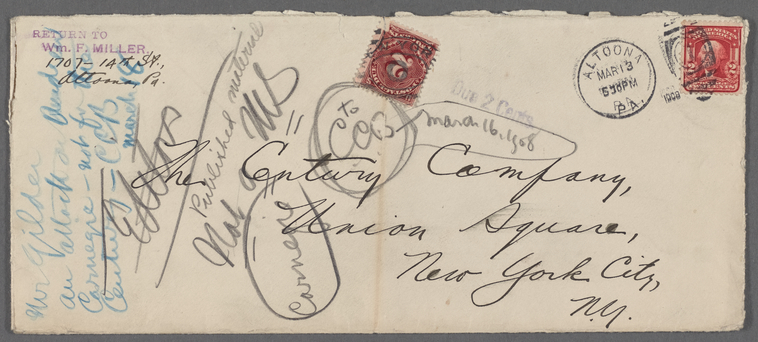 RETURN TO
Wm. F. MILLER,
1707-14th St.,
Altoona, Pa.
ALTOONA
MAR 13
530PM
PA.
1908
Due 2 Cents
March 16, 1908
The Century Company,
Union Square,
New York City,
N.Y.
Mr Gilder
an attack on
Carnegie - not for the
Century - CCB
March 18
Published material
Not a MS
to
CCB
Carnegie
2
2